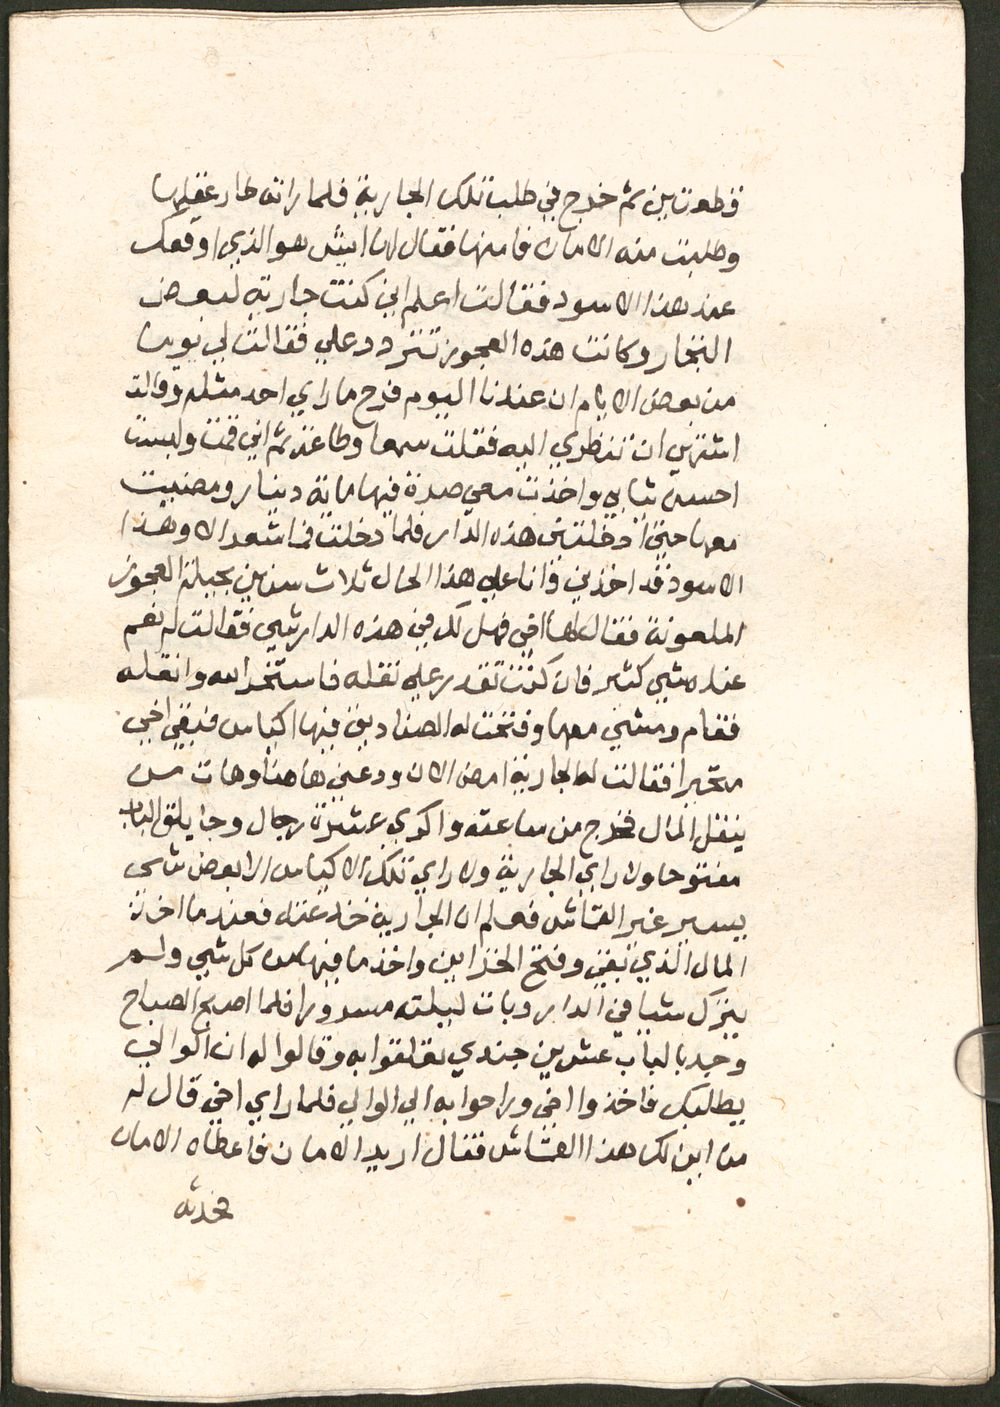 قطعتين ثم خرج في طلب تلك الجارية فلما راته طار عقلها
وطلبت منه الامان فامنها فقال لها ايش هو الذي اوقعك
عند هذا الاسود فقالت اعلم اني كنت جارية لبعض
التجار وكانت هذه العجوز تتردد علي فقالت لي يوما
من بعض الايام ان عندنا اليوم فرح ما راي احد مثله وقالت
اشتهي ان تنظري اليه فقلت سمعا وطاعة ثم اني قمت ولبست
احسن ثيابي واخذت معي صرة فيها ماية دينار ومضيت
معها حتي ادخلتني هذه الدار فلما دخلت فما اشعر الا وهذا
الاسود قد اخذني وانا علي هذا الحال ثلاث سنين بحيلة العجوز
الملعونة فقال لها اخي فهل لك في هذه الدار شي فقالت له نعم
عنده شي كثير فان كنت تقدر علي نقله فاستخر الله وانقله
فقام ومشي معها وفتحت له الصناديق فيها اكياس فبقي اخي
متحيرا فقالت له الجارية امض الان ودعني هاهنا وهات من
ينقل المال فخرج من ساعته واكري عشرة رجال وجا يلق الباب
مفتوحا ولا راي الجارية ولا راي تلك الاكياس الا بعض شي
يسير غير القماش فعلم ان الجارية خدعته فعندما اخذ
المال الذي بقي وفتح الخزاين واخذ ما فيها من كل شي ولم
يترك شيا في الدار وبات ليلته مسرورا فلما اصبح الصباح
وجد بالباب عشرين جندي تعلقوا به وقالوا له ان الوالي
يطلبك فاخذوا اخي وراحوا به الي الوالي فلما راي اخي قال له
من اين لك هذا القماش فقال اريد الامان فاعطاه الامان
فحدثه